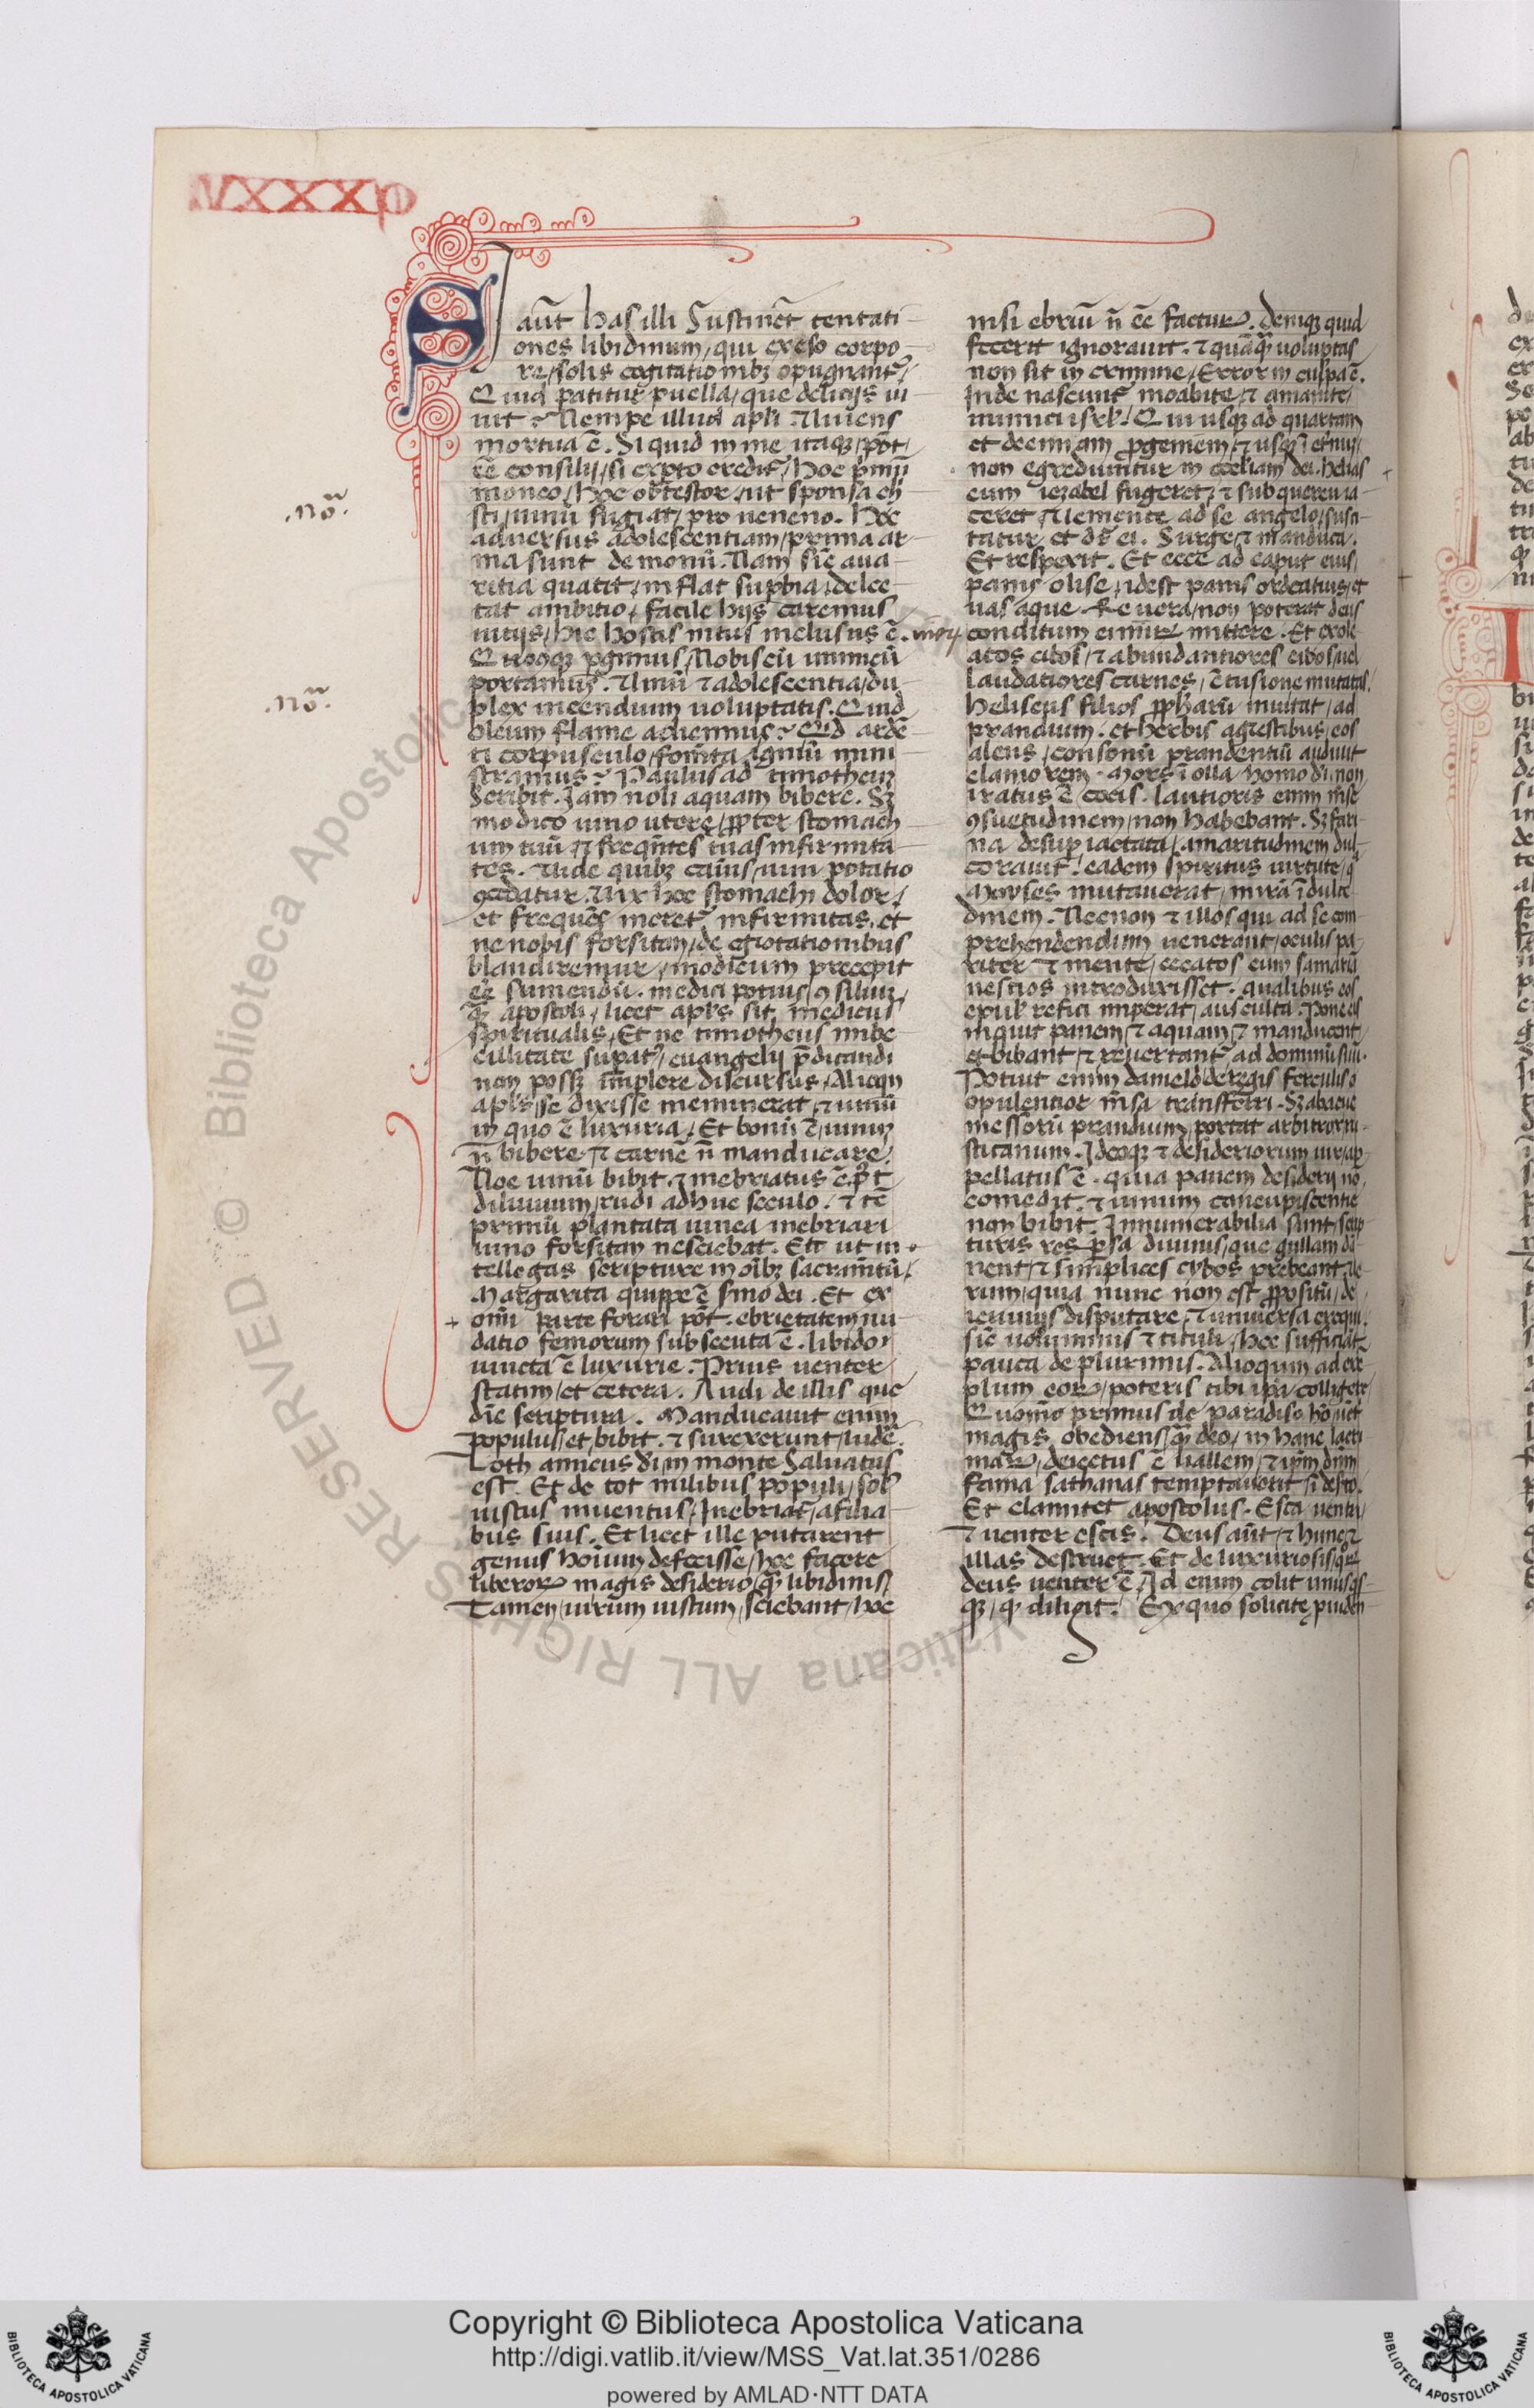 SI
aūt has illi Sustinēt tentati-
ones libidinum, qui exeso corpo-
re, solis cogitationibꝫ opugnant᷑,
Quid patitur puella, que delicijs ui-
uit? Nempe illud apli. Uiuens
mortua ē. Si quid in me itaqꝫ, pōt,
eē consilij, si expto credit᷑, hoc pͥmū
moneo, hoc obtestor, ut sponsa ch
sti, uinū fugiat, pro ueneno. Hec
aduersus adolescentiam, prima ar-
ma sunt demonū. Nam sic̄ aua-
ritia quatit, inflat supbia, delec-
tat ambitio, facile hijs caremus
uitijs, hic hostis intus inclusus ē.
Quocqꝫ pgimus, Nobiscū inimicū
portamus. Uinū ⁊ adolescentia, du-
plex incendium uoluptatis. Quid
oleum flame adicimus? Qid ardē-
ti corpusculo, fomēta igniū mini
stramus? Paulus ad timotheum
Scribit. Jam noli aquam bibere. Sꝫ
modico uino utere, ꝓpter stomach
um tuū ⁊ freqn̄tes tuas infirmita-
tes. Uide quibꝫ cauis, uini potatio
ꝯcedatur. Uix hec stomachi dolor,
et frequēs meret᷑ infirmitas, et
ne nobis forsitan, de egrotationibus
blandiremur, modicum precepit
eē sumendū. medici potius ꝯsilium,
qꝫ apostoli, licet apls sit medicus
spiritualis, Et ne timotheus imbe
cillitate supat᷑, euangelij p̄dicandi
non possꝫ implere discursus, Alioqn
apls, se dixisse meminerat, ⁊ uinū
in quo ē luxuria, Et bonū ē, uinum
n̄ bibere, ⁊ carnē n̄ manducare.
Noe uinū bibit, ⁊ inebriatus ē, p̄t
diluuium, rudi adhuc seculo, ⁊ tc̄
primū plantata uinea inebriari
uino forsitan nesciebat. Et ut in-
tellegas scripture in oībꝫ sacramētū,
Margarita quippe ē smo dei. Et ex
omi parte forari pōt. ebrietatem nu-
datio femorum subsecuta ē. libido
iuncta ē luxurie. Prius uenter
statim, et cetera. Audi de illis que
dic̄ scriptura. Manducauit enim
populus, et bibit. ⁊ surrexerunt, ludē.
Loth amicus di, in monte Saluatus
est. Et de tot milibus populi, sol
iustus inuentus, Inebriat᷑, a filia-
bus suis. Et licet ille putarent
genus hoīum defecisse, hoc facere
liberoꝝ magis desiderio, qꝫ libidinis,
Tamen, uirum iustum, sciebant, hoc
nisi ebriū n̄ eē facturꝫ. Deniqꝫ quid
fecerit ignorauit. ⁊ quāqꝫ uoluptas
non sit in crimine, Error in culpa ē.
Inde nascunt᷑ moabite, ⁊ amanite,
inimici isrl. Qui usqꝫ ad quartam
et decimam ꝓgeniem, ⁊ usqꝫ ī eternū,
non egrediuntur in eccliam dei. Helias
cum iezabel fugeret, ⁊ sub quercu ia-
ceret, Ueniente ad se angelo, susci-
tatur et dr̄ ei. Surge, ⁊ manduca.
Et respexit. Et ecce ad caput eius,
panis olise, idest panis ordeatius, et
uas aque. Re uera, non poterat deus
conditum ei uinum mittere. Et ex ole-
atos cibos, ⁊ abundantiores cibos, uel
laudatiores carnes, ē tusione mutatas.
Heliseus filios ꝓphetarū inuitat, ad
prandium. et herbis agrestibus, eos
alens, consonū prandentiū audiuit
clamorem. Mors ī olla, homo di. non
iratus ē cocis. lautioris enim mēse
ꝯsuetudinem, non habebant. Sꝫ fari-
na desup iactata, amaritudinem dul-
corauit. eadem spiritus uirtute, q
Moyses mutauerat, mirā ī dulce
dinem. Necnon ⁊ illos qui ad se com-
prehendendum uenerant, oculis pa-
riter ⁊ mente, cecatos cum samariā
nescios introduxisset. qualibus eos
epul refici imperat, ausculta. Pone eis
inquit panem, ⁊ aquam, ⁊ manducent,
et bibant, ⁊ reuertant᷑ ad dominū suū.
Potuit enim danielo de regis ferculis o
opulentior mēsa transferri. Sꝫ abacuc
messorū prandium, portat arbitror ru-
sticanum. Ideoqꝫ ⁊ desideriorum uir, ap-
pellatus ē. quia panem desiderij nō
comedit, ⁊ uinum concupiscentie
non bibit. Innumerabilia sunt, scrip-
turis respersa diuinis, que gullam dā-
nent, ⁊ simplices cybos prebeant, Ue-
rum, quia nunc non est ꝓpositū, de
ieiunijs disputare, ⁊ uniuersa exequi.
sic̄ uoluminis ⁊ tituli, hec sufficiāt,
pauca de plurimis. Alioquin ad exē-
plum eoꝝ, poteris tibi ipa colligere,
Quomō primus de paradiso hō, uēt
magis obediens, qꝫ deo, in hanc lacri
maꝝ, deiectus ē uallem, ⁊ ipm dnm
fama sathanas temptauerit, ī deserto.
Et clamitet apostolus. Esca uentri,
⁊ uenter escis. Deus aūt, ⁊ hunc ⁊
illas destruet. Et de luxuriosis, qꝝ
deus uenter ē, Id enim colit unusqs-
qꝫ, qꝫ diligit. Ex quo solicite, puiden-
.nō.
.nō.
Copyright © Biblioteca Apostolica Vaticana
http://digi.vatlib.it/view/MSS_Vat.lat.351/0286
powered by AMLAD·NTT DATA
BIBLIOTECA APOSTOLICA VATICANA
BIBLIOTECA APOSTOLICA VATICANA
© Biblioteca Apostolica Vaticana ALL RIGHTS RESERVED